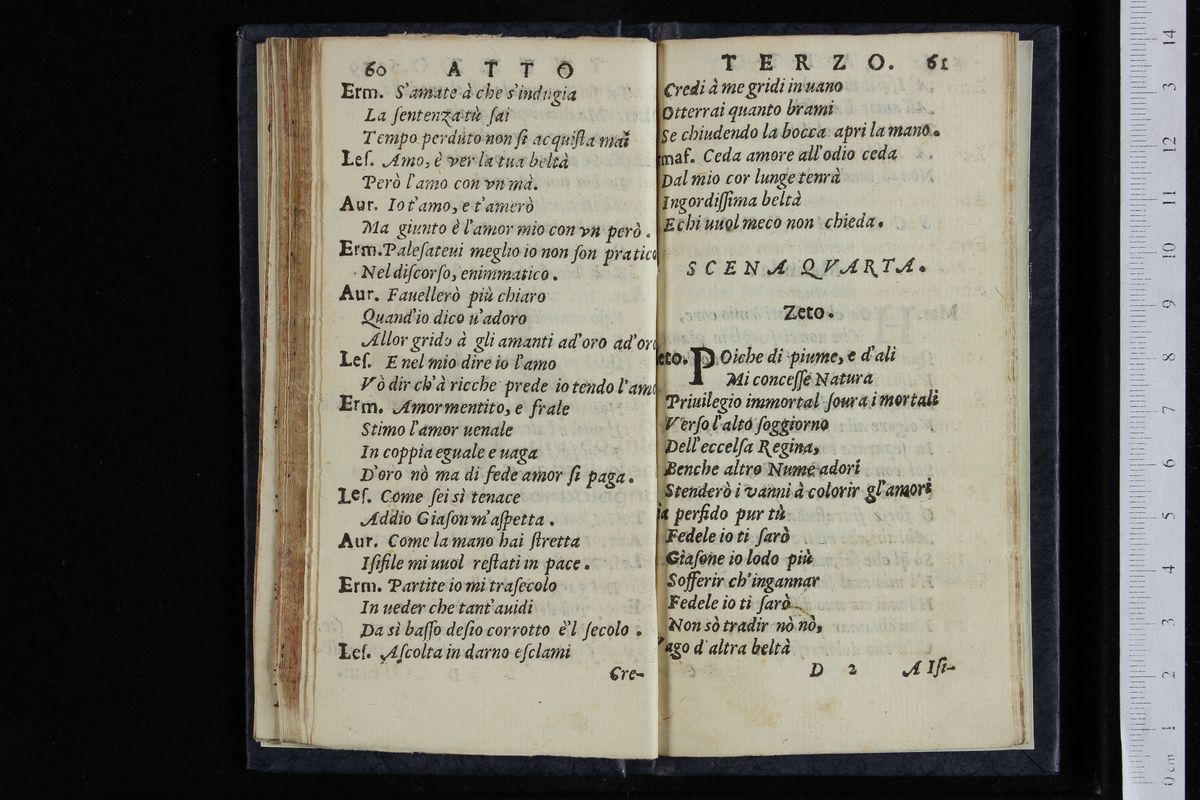 60 ATTO
Erm. S'amate à che s'indugia
La ſentenza tù ſai
Tempo perduto non ſi acquiſta mai
Leſ. Amo, è ver la tua beltà
Però l'amo con vn mà.
Aur. Io t'amo, e t'amerò
Ma giunto è l'amor mio con vn però.
Erm. Paleſateui meglio io non ſon pratico
Nel diſcorſo, enimmatico.
Aur. Fauellerò più chiaro
Quand'io dico u'adoro
Allor grido à gli amanti ad'oro ad'oro
Leſ. E nel mio dire io l'amo
Vò dir ch'à ricche prede io tendo l'amo
Erm. Amor mentito, e frale
Stimo l'amor uenale
In coppia eguale e uaga
D'oro nò ma di fede amor ſi paga.
Leſ. Come ſei sì tenace
Addio Giaſon m'aſpetta.
Aur. Come la mano hai ſtretta
Iſifile mi uuol reſtati in pace.
Erm. Partite io mi traſecolo
In ueder che tant'auidi
Da sì baſſo deſio corrotto è'l ſecolo.
Leſ. Aſcolta in darno eſclami
Cre-
TERZO. 61
Credi à me gridi in uano
Otterrai quanto brami
Se chiudendo la bocca apri la mano.
maf. Ceda amore all'odio ceda
Dal mio cor lunge tenrà
Ingordiſſima beltà
E chi uuol meco non chieda.
SCENA QVARTA.
Zeto.
eto. POiche di piume, e d'ali
Mi conceſſe Natura
Priuilegio immortal ſoura i mortali
Verſo l'alto ſoggiorno
Dell'eccelſa Regina,
Benche altro Nume adori
Stenderò i vanni à colorir gl'amori
ia perfido pur tù
Fedele io ti ſarò
Giaſone io lodo più
Sofferir ch'ingannar
Fedele io ti ſarò
Non sò tradir nò nò,
Vago d'altra beltà
D 2 A Iſi-